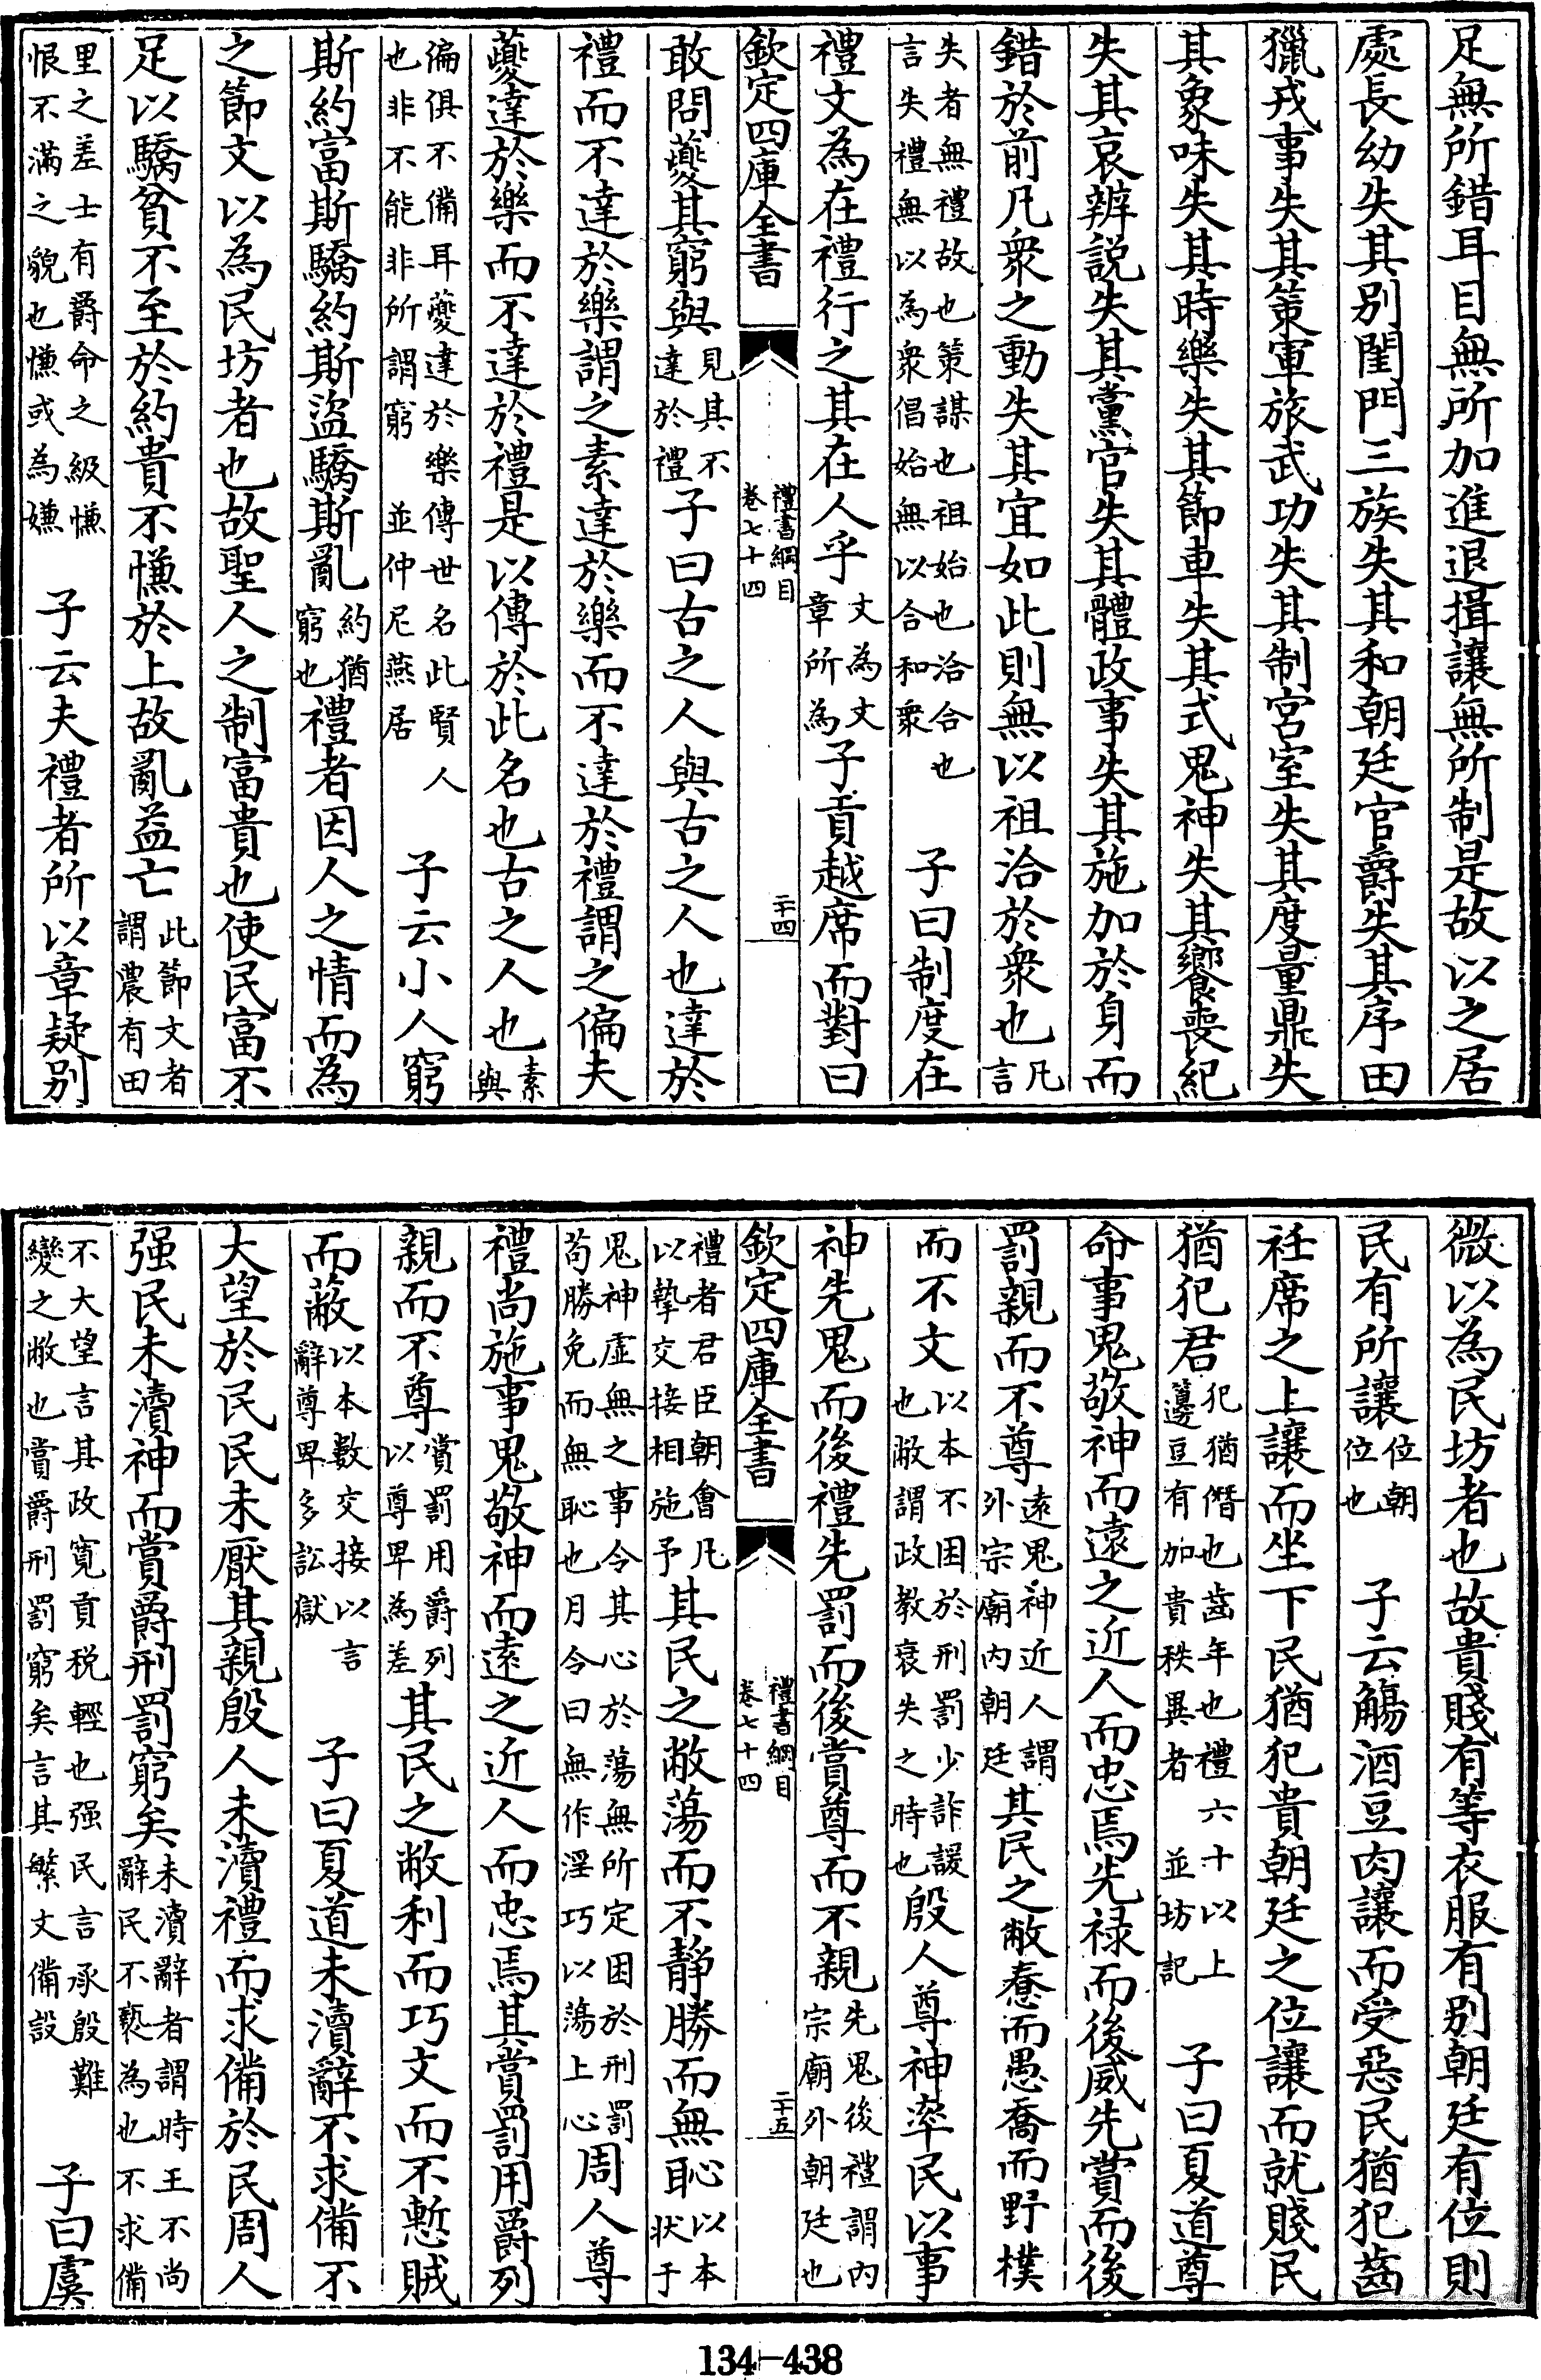 足無所錯耳目無所加進退揖讓無所制是故以之居
處長幼失其别閨門三族失其和朝廷官爵失其序田
獵戎事失其策軍旅武功失其制宮室失其度量鼎失
其象味失其時樂失其節車失其式鬼神失其饗喪紀
失其哀辨説失其黨官失其體政事失其施加於身而
錯於前凡衆之動失其宜如此則無以祖洽於衆也凡言
失者無禮故也策謀也祖始也洽合也言失禮無以為衆倡始無以合和衆 子曰制度在
禮文為在禮行之其在人乎文為文章所為子貢越席而對曰
欽定四庫全書 禮書綱目卷七十四 二十四
敢問夔其窮與見其不達於禮子曰古之人與古之人也達於
禮而不達於樂謂之素達於樂而不達於禮謂之偏夫
夔達於樂而不達於禮是以傳於此名也古之人也素與
偏俱不備耳夔達於樂傳世名此賢人也非不能非所謂窮 並仲尼燕居 子云小人窮
斯約富斯驕約斯盜驕斯亂約猶窮也禮者因人之情而為
之節文以為民坊者也故聖人之制富貴也使民富不
足以驕貧不至於約貴不慊於上故亂益亡此節文者謂農有田
里之差士有爵命之級慊恨不滿之貌也慊或為嫌 子云夫禮者所以章疑别
微以為民坊者也故貴賤有等衣服有别朝廷有位則
民有所讓位朝位也 子云觴酒豆肉讓而受惡民猶犯齒
衽席之上讓而坐下民猶犯貴朝廷之位讓而就賤民
猶犯君犯猶僭也齒年也禮六十以上籩豆有加貴秩異者 並坊記 子曰夏道尊
命事鬼敬神而遠之近人而忠焉先禄而後威先賞而後
罰親而不尊遠鬼神近人謂外宗廟内朝廷其民之敝惷而愚喬而野樸
而不文以本不困於刑罰少詐諼也敝謂政教衰失之時也殷人尊神率民以事
神先鬼而後禮先罰而後賞尊而不親先鬼後禮謂内宗廟外朝廷也
欽定四庫全書 禮書綱目卷七十四 二十五
禮者君臣朝會凡以摯交接相施予其民之敝蕩而不静勝而無恥以本狀于
鬼神虛無之事令其心於蕩無所定困於刑罰苟勝免而無恥也月令曰無作淫巧以蕩上心周人尊
禮尚施事鬼敬神而遠之近人而忠焉其賞罰用爵列
親而不尊賞罰用爵列以尊卑為差其民之敝利而巧文而不慙賊
而蔽以本數交接以言辭尊卑多訟獄 子曰夏道未瀆辭不求備不
大望於民民未厭其親殷人未瀆禮而求備於民周人
强民未瀆神而賞爵刑罰窮矣未瀆辭者謂時王不尚辭民不褻為也不求備
不大望言其政寬貢税輕也强民言承殷難變之敝也賞爵刑罰窮矣言其繁文備設 子曰虞
134-438